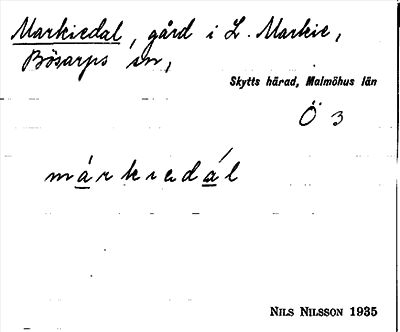 Markiedal, gård i L. Markie,
Bösarps sn,
Skytts härad, Malmöhus län
Ö 3
márkiedál
NILS NILSSON 1935